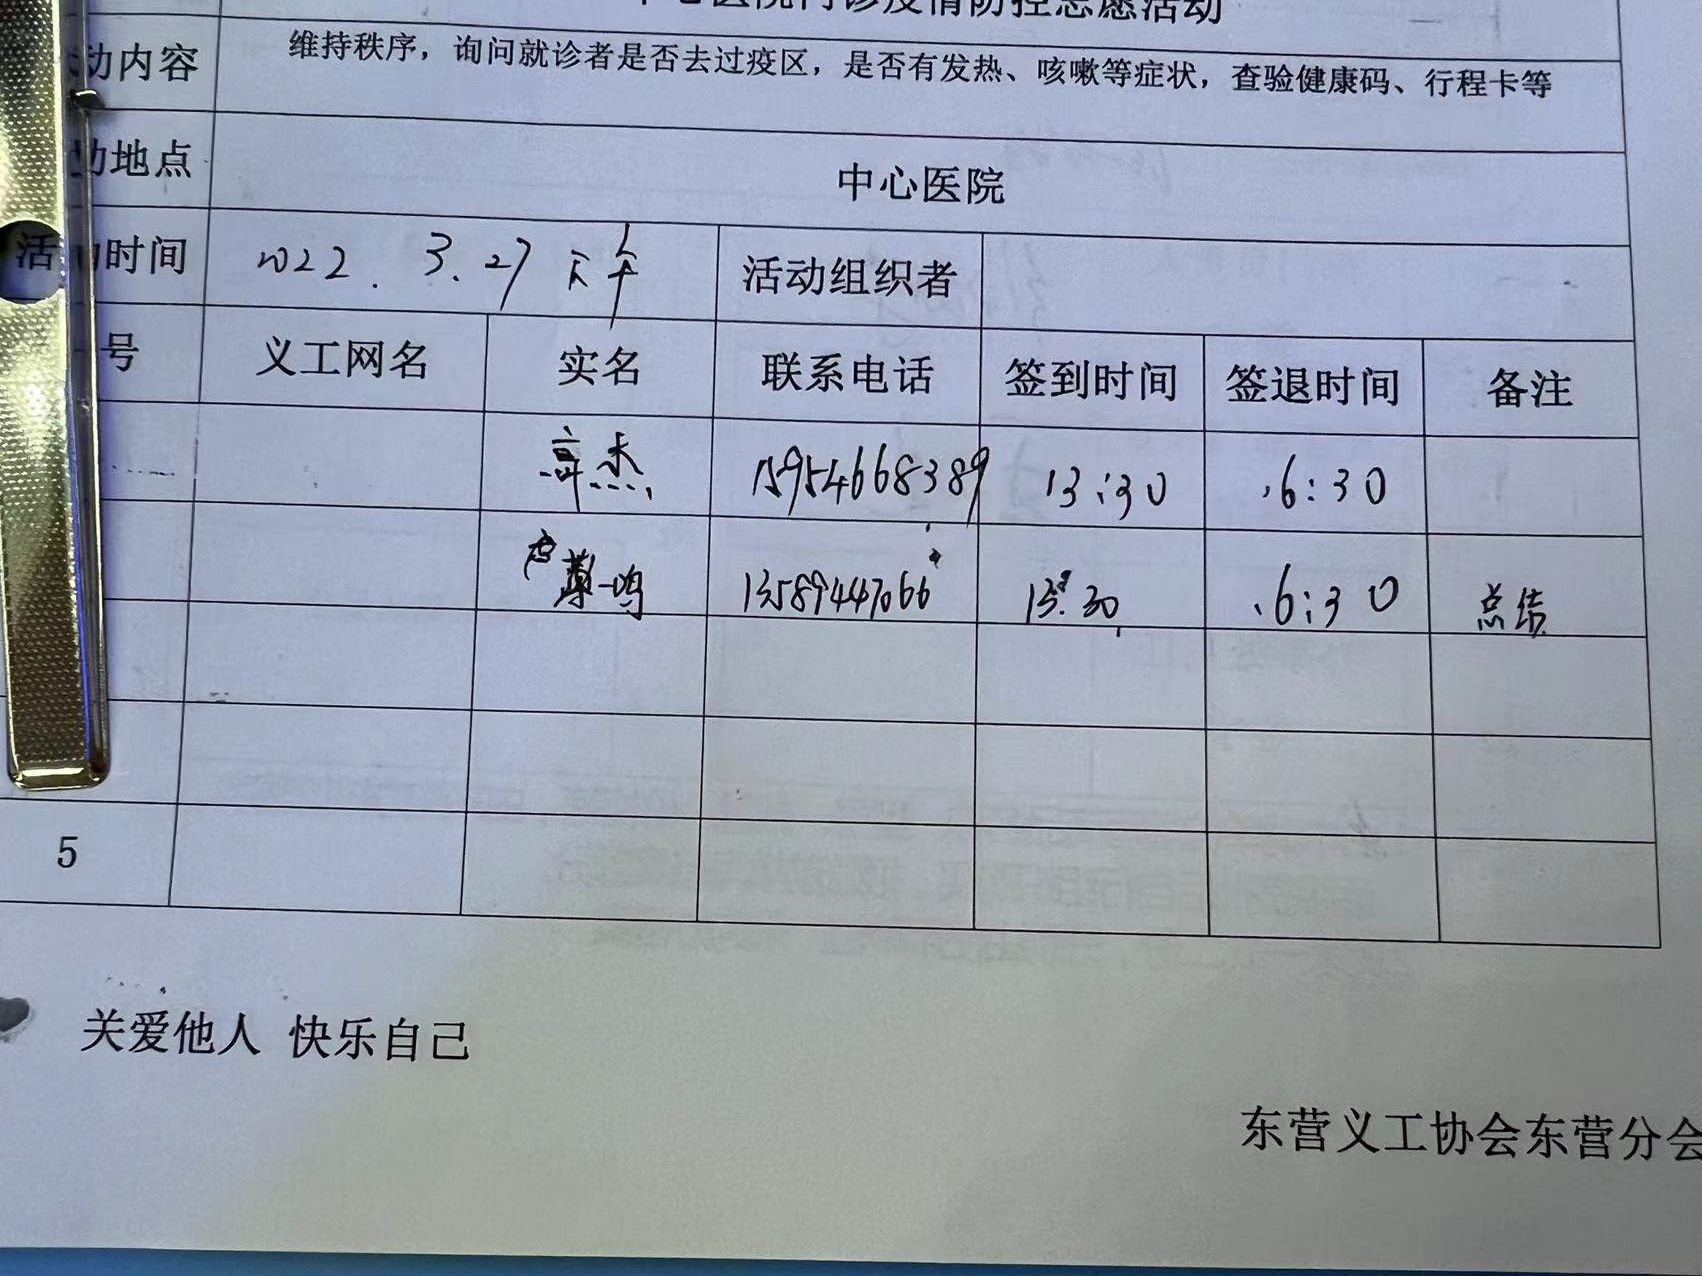 中心医院门诊疫情防控志愿活动
动内容 维持秩序，询问就诊者是否去过疫区，是否有发热、咳嗽等症状，查验健康码、行程卡等
动地点 中心医院
活动时间 2022.3.27 下午 活动组织者
号 义工网名 实名 联系电话 签到时间 签退时间 备注
高杰 15954668389 13:30 16:30
13589447066 13:30 16:30 总结
5
关爱他人 快乐自己
东营义工协会东营分会